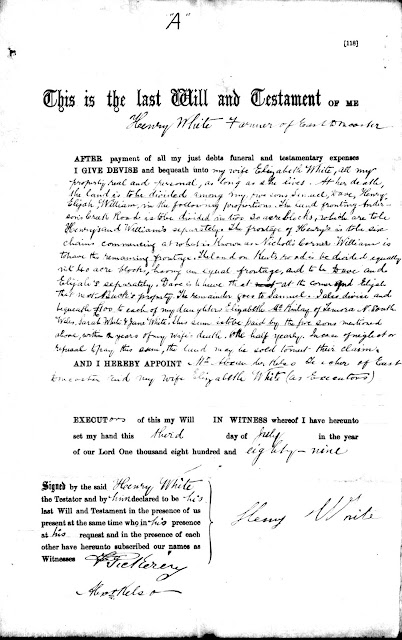 "A"
[118]
This is the last Will and Testament OF ME
Henry White Farmer of East Doncaster
AFTER payment of all my just debts funeral and testamentary expenses
I GIVE DEVISE and bequeath unto my wife Elizabeth White, all my
property real and personal, as long as she lives. At her death,
the land is to be divided among my five sons Samuel, Dave, Henry,
Elijah William, in the following proportions. The land fronting Ander-
sons Creek Road is to be divided in two 20 acre blocks, which are to be
Henry's and William's separately. The frontage of Henry's is to be six
chains commencing at what is known as Nicholls Corner William is
to have the remaining frontage. The land on Rent's road is to be divided equally
into acre blocks, having an equal frontage, and to be Dave and
Elijah's separately. Dave is to have that at the corner and Elijah
that next property. The remainder goes to Samuel. I also devise and
bequeath £100 to each of my daughters Elizabeth of Tenora N South
Wales, Sarah White & Jane White, this sum is to be paid by the five sons mentioned
above, within years of my wife's death, half yearly. In case of neglect or
refusal to pay this sum, the land may be sold to meet their claims.
AND I HEREBY APPOINT Mr. Alexander Kelso Teacher of East
Doncaster and my wife Elizabeth White (as Executors)
EXECUTors of this my Will IN WITNESS whereof I have hereunto
set my hand this third day of July in the year
of our Lord One thousand eight hundred and eighty-nine
Signed by the said Henry White
the Testator and by him declared to be his
last Will and Testament in the presence of us
present at the same time who in his presence
at his request and in the presence of each
other have hereunto subscribed our names as
Witnesses Pickering
Henry White
Alex Kelso